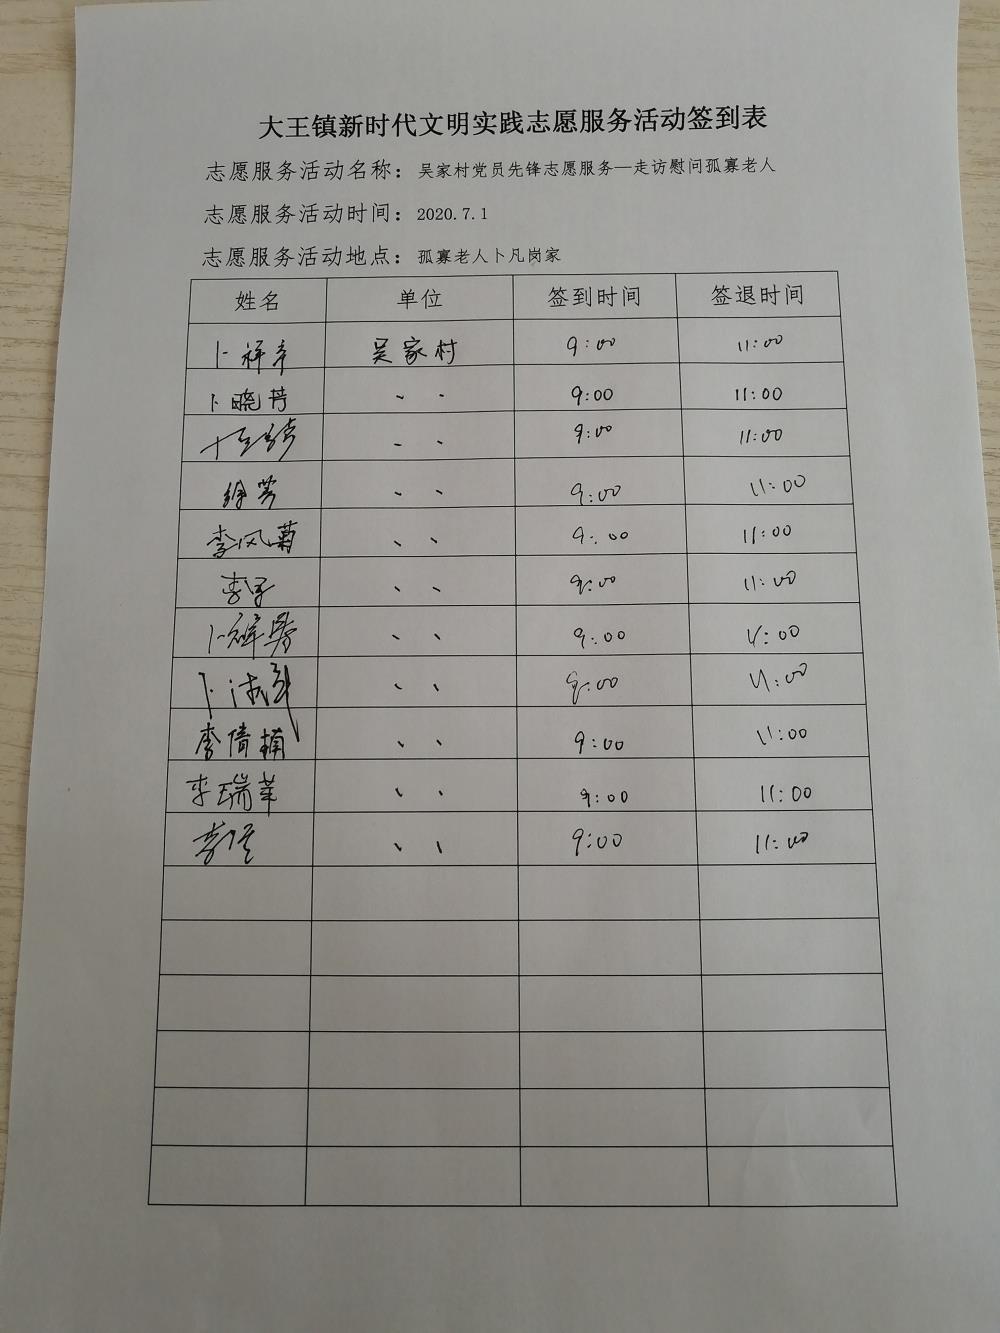 大王镇新时代文明实践志愿服务活动签到表
志愿服务活动名称：吴家村党员先锋志愿服务—走访慰问孤寡老人
志愿服务活动时间：2020.7.1
志愿服务活动地点：孤寡老人卜凡岗家
姓名 单位 签到时间 签退时间
卜祥 吴家村 9:00 11:00
卜晓芳 、、 9:00 11:00
、、 9:00 11:00
徐芳 、、 9:00 11:00
李风菊 、、 9:00 11:00
李 、、 9:00 11:00
卜 、、 9:00 11:00
卜 、、 9:00 11:00
李倩楠 、、 9:00 11:00
李瑞华 、、 9:00 11:00
李 、、 9:00 11:00